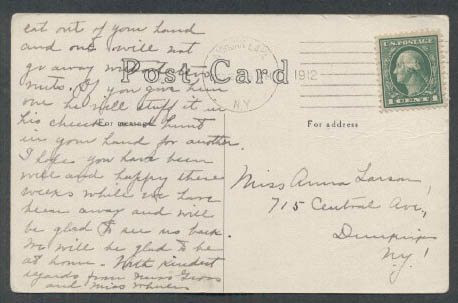 eat out of your hand
and one will not
go away without two
nuts. If you give him
one he will stuff it in
his cheek and hunt
in your hand for another.
I hope you have been
well and happy these
weeks while we have
been away and will
be glad to see us back.
We will be glad to be
at home. With kindest
regards from Miss
and Miss
Post Card
For message
For address
N.Y.
1912
U.S. POSTAGE
1 CENT 1
Miss Anna Larson,
715 Central Ave,
N.Y.